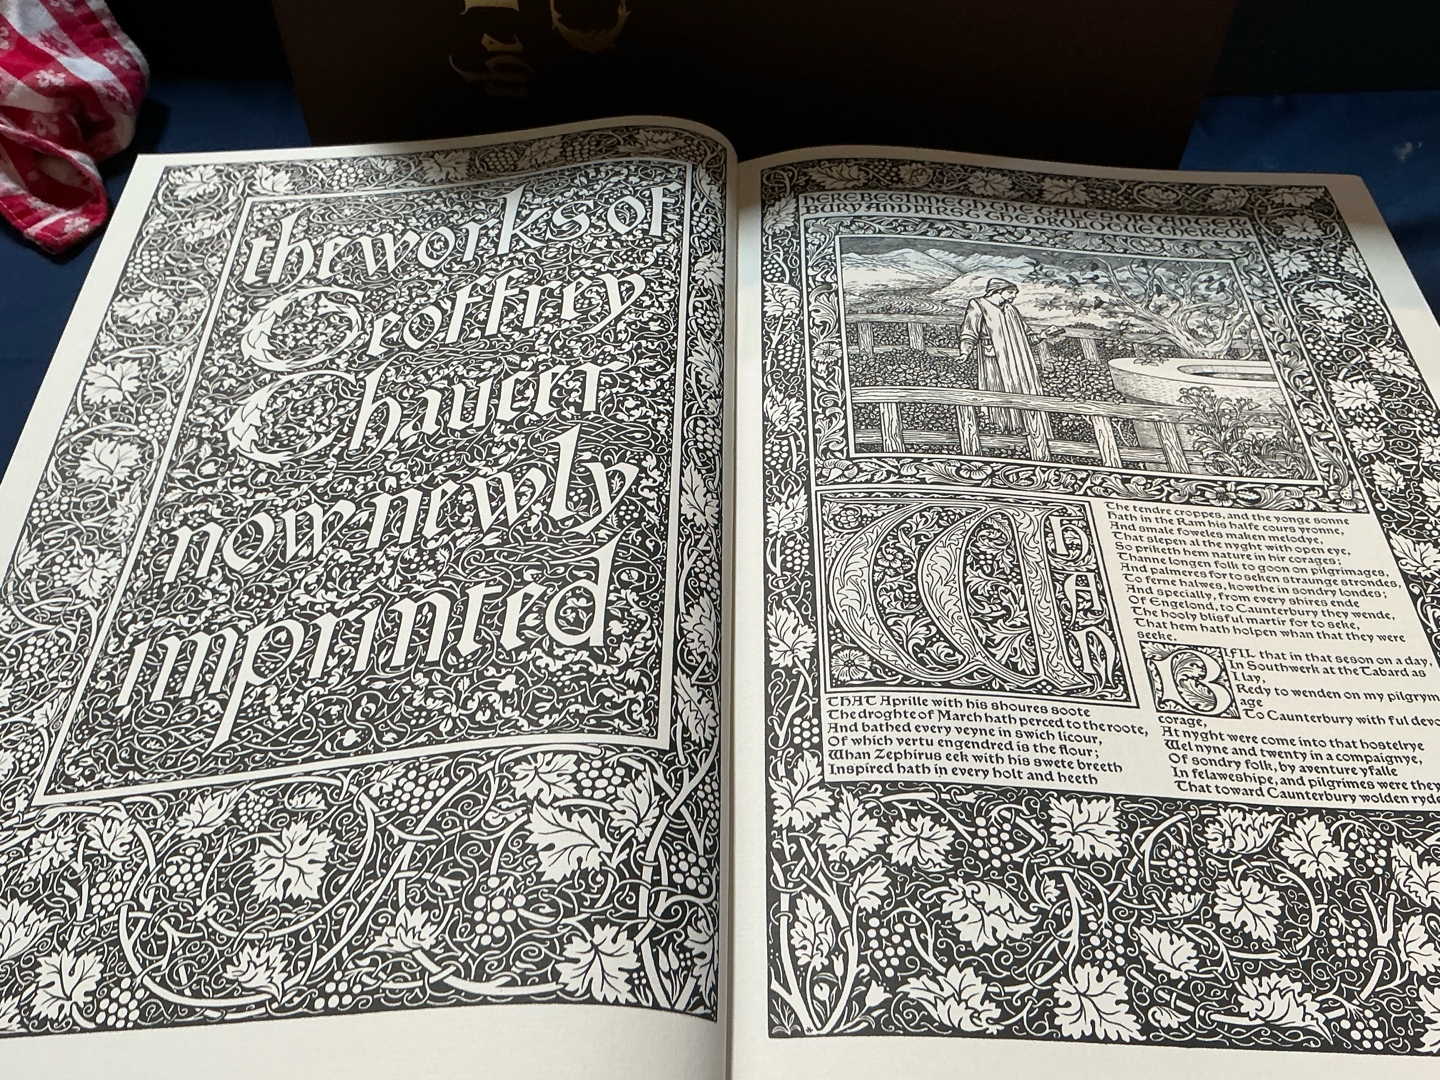 the
the works of
Geoffrey
Chaucer
now newly
imprinted
HERE BEGINNETH THE TALES OF CANTER
BURY AND FIRST THE PROLOGUE THEREOF
WHAN
THAT Aprille with his shoures soote
The droghte of March hath perced to the roote,
And bathed every veyne in swich licour,
Of which vertu engendred is the flour;
Whan Zephirus eek with his swete breeth
Inspired hath in every holt and heeth
The tendre croppes, and the yonge sonne
Hath in the Ram his halfe cours yronne,
And smale foweles maken melodye,
That slepen al the nyght with open eye,
So priketh hem nature in hir corages;
Thanne longen folk to goon on pilgrimages,
And palmeres for to seken straunge strondes,
To ferne halwes, kowthe in sondry londes;
And specially, from every shires ende
Of Engelond, to Caunterbury they wende,
The hooly blisful martir for to seke,
That hem hath holpen whan that they were
seeke.
BIFIL that in that seson on a day,
In Southwerk at the Tabard as
I lay,
Redy to wenden on my pilgrym
age
To Caunterbury with ful devo
corage,
At nyght were come into that hostelrye
Wel nyne and twenty in a compaignye,
Of sondry folk, by aventure yfalle
In felaweshipe, and pilgrimes were they
That toward Caunterbury wolden ryde